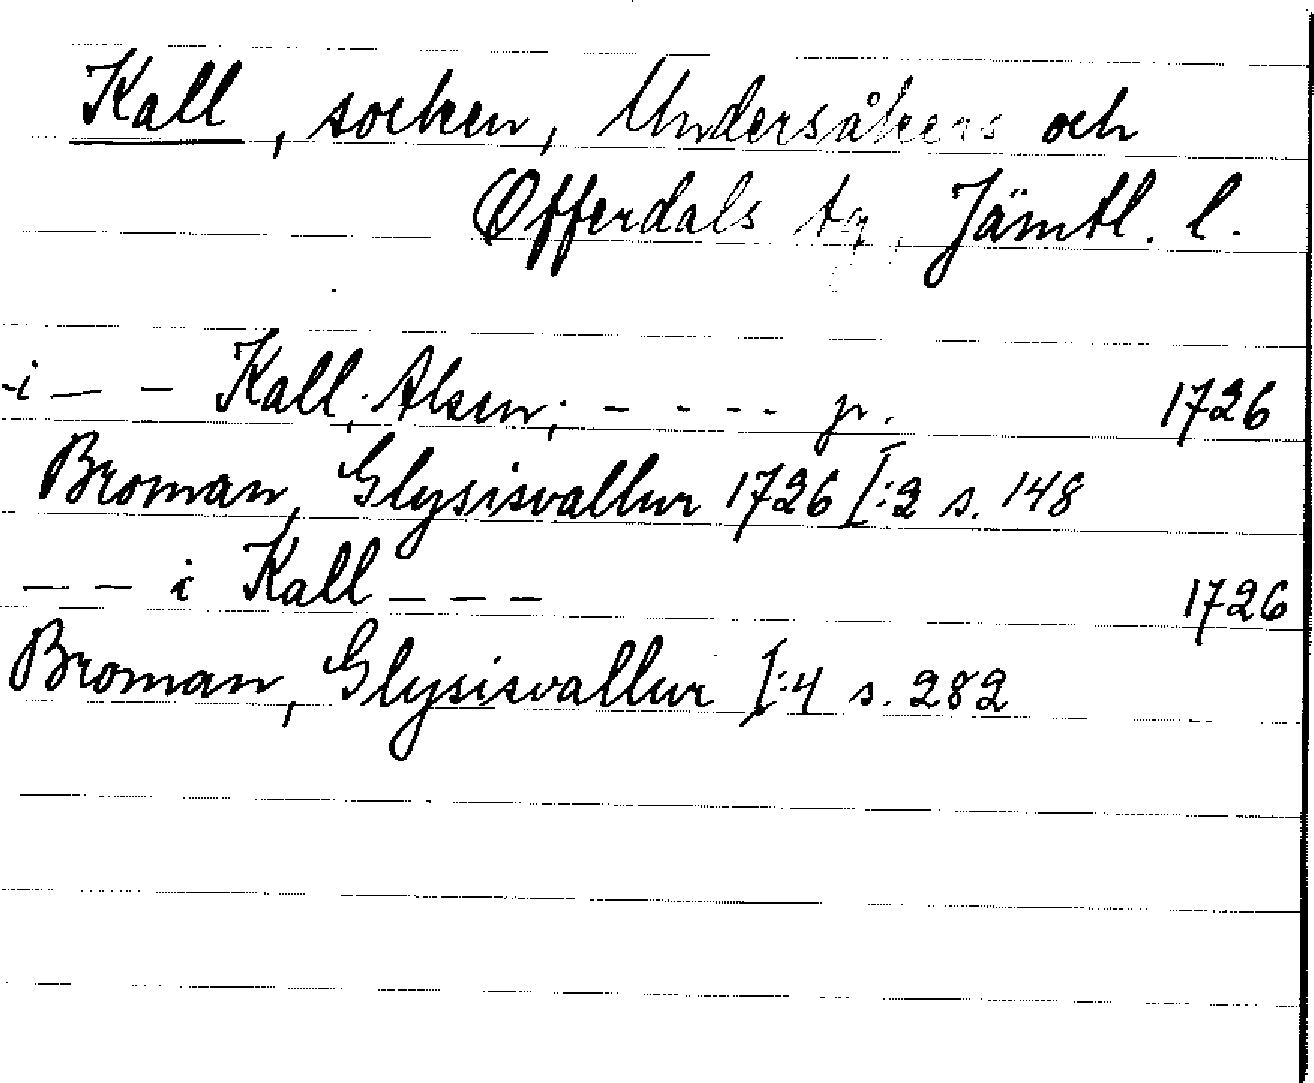 Kall, socken, Undersåkers och
Offerdals tg, Jämtl. l.
-i — — Kall, Alsen; - - - - p. 1726
Broman, Glysisvallur 1726 I:2 s. 148
— — i Kall — — — 1726
Broman, Glysisvallur I:4 s. 282